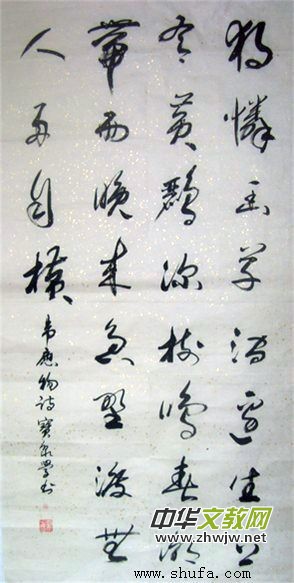 獨憐幽草澗邊生上
有黃鸝深樹鳴春潮
帶雨晚來急野渡無
人舟自橫
韋應物詩寶泉學書
中华文教网
www.zhwjw.net
www.shufa.com